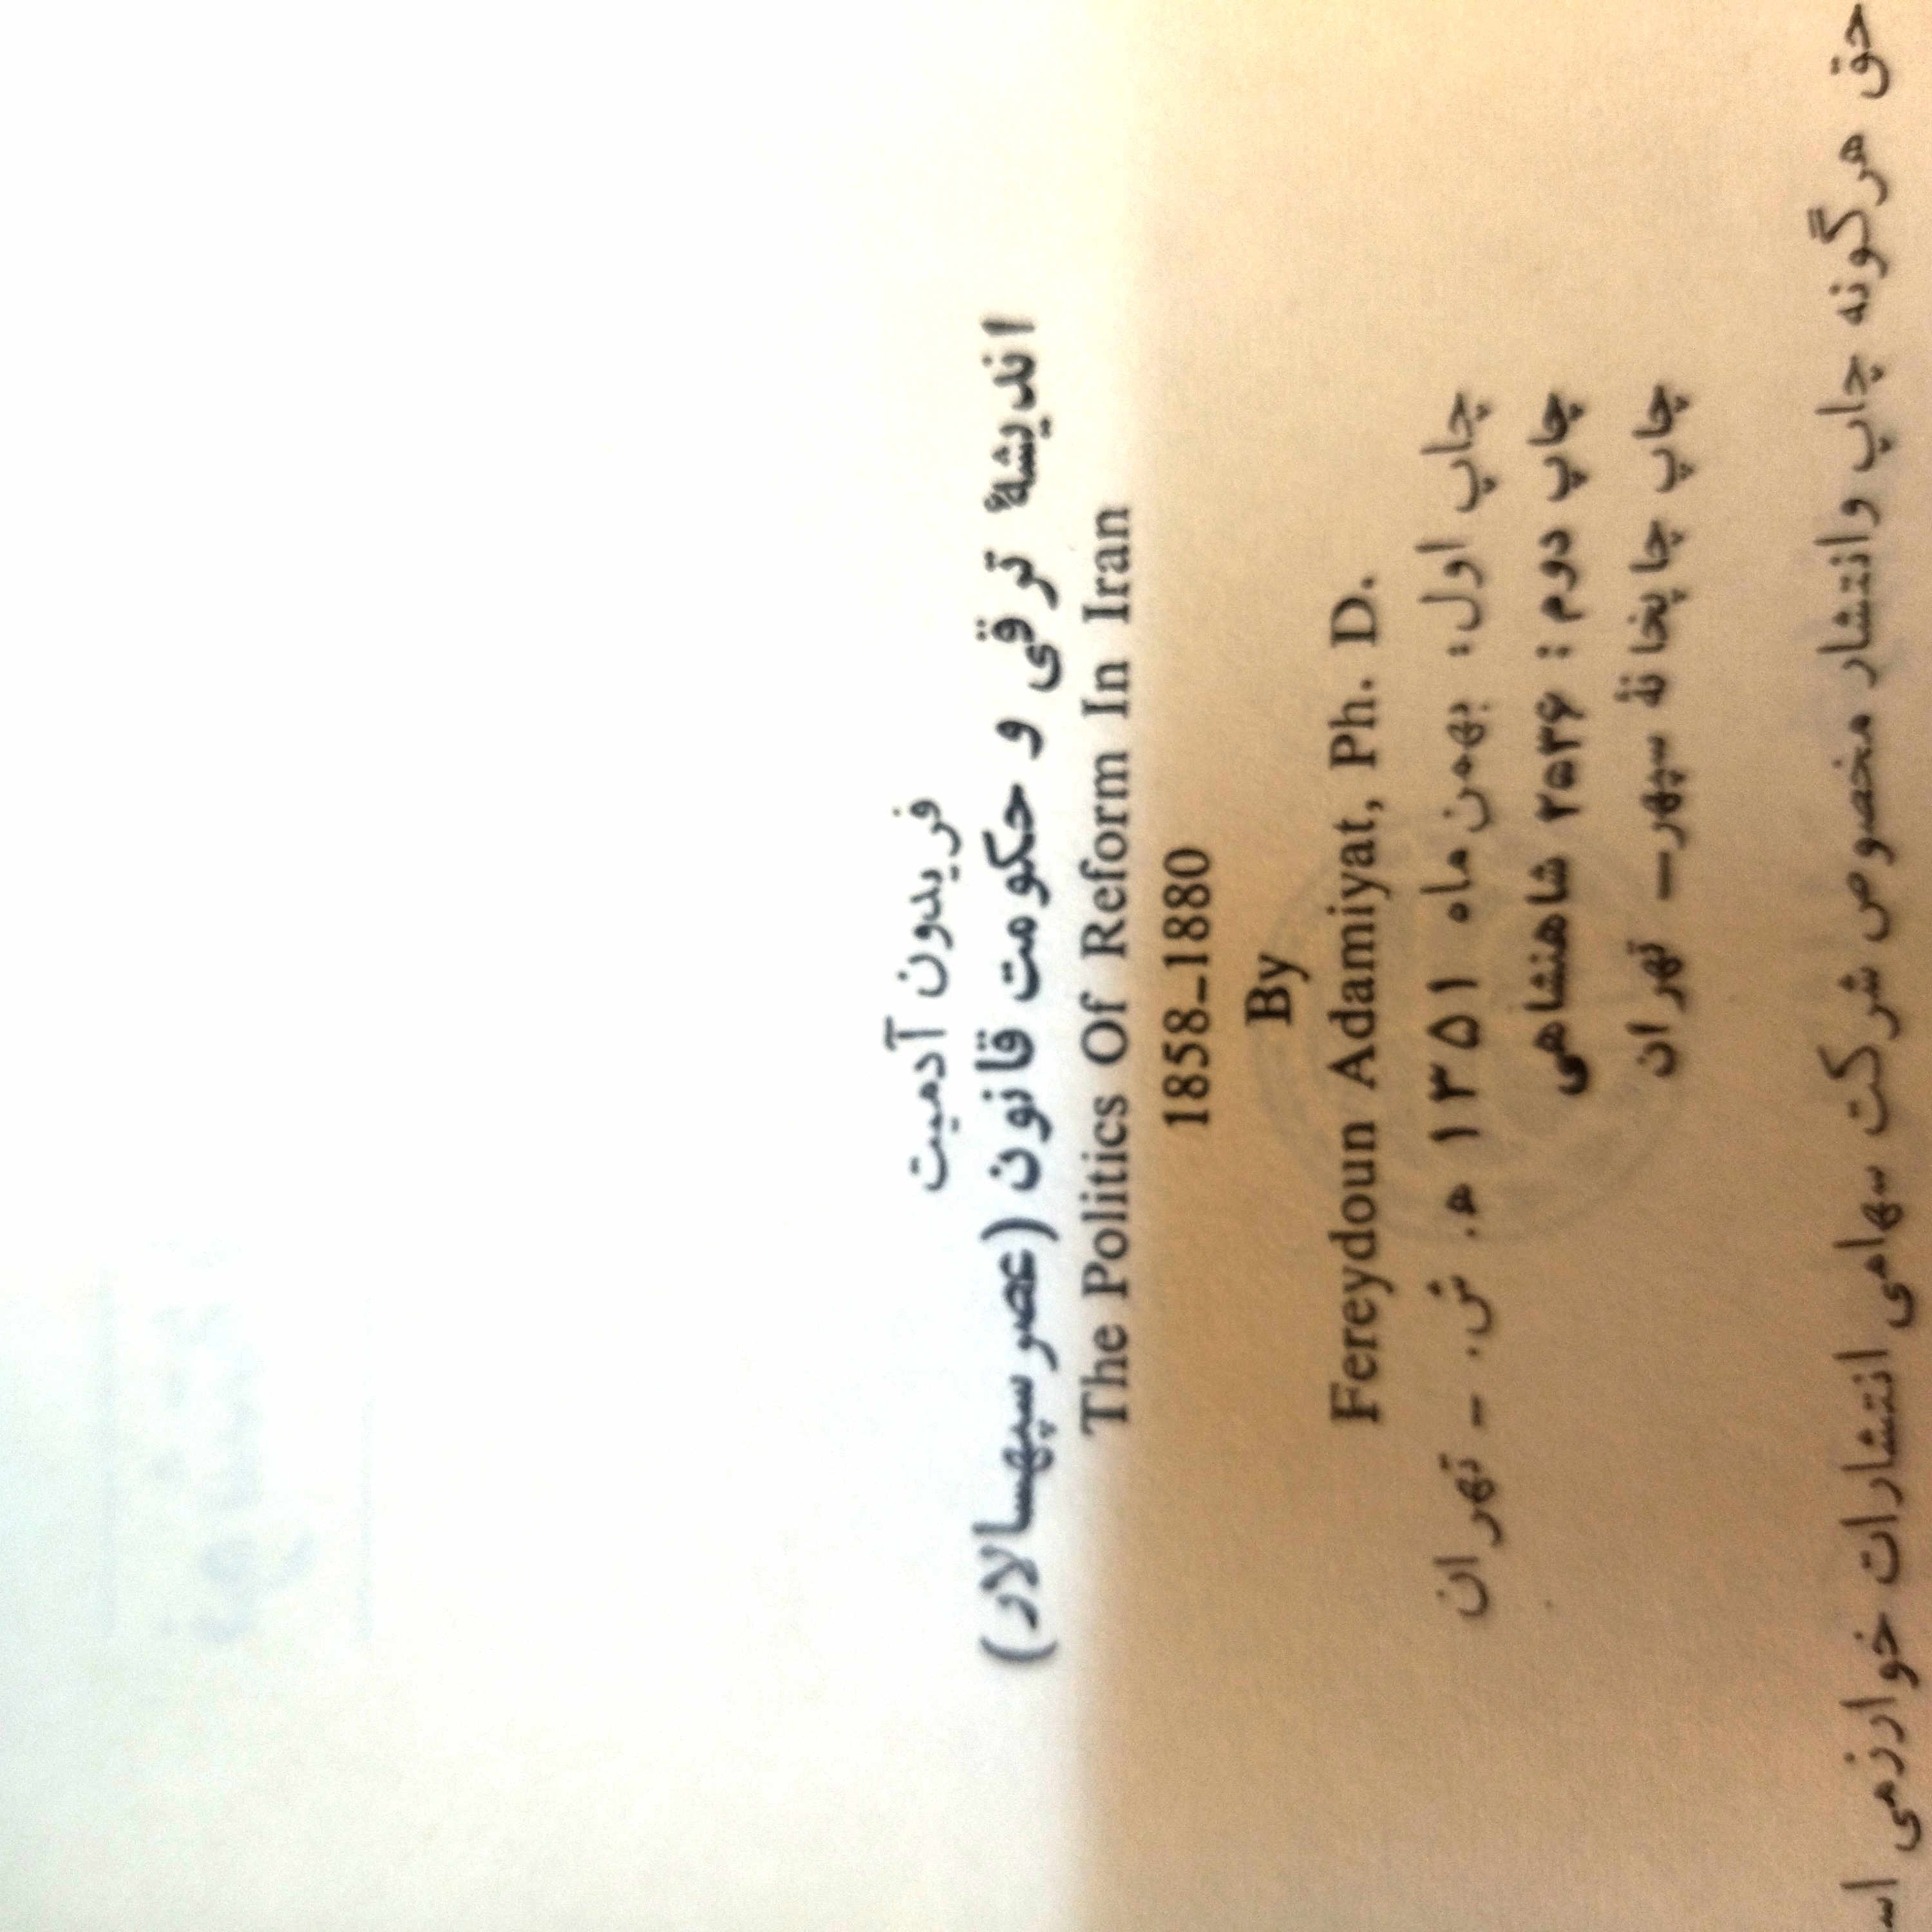 فریدون آدمیت
اندیشهٔ ترقی و حکومت قانون (عصر سپهسالار)
The Politics Of Reform In Iran
1858-1880
By
Fereydoun Adamiyat, Ph. D.
چاپ اول: بهمن ماه ۱۳۵۱ ه‍. ش. - تهران
چاپ دوم: ۲۵۳۶ شاهنشاهی
چاپ چاپخانهٔ سپهر- تهران
حق هرگونه چاپ وانتشار مخصوص شرکت سهامی انتشارات خوارزمی